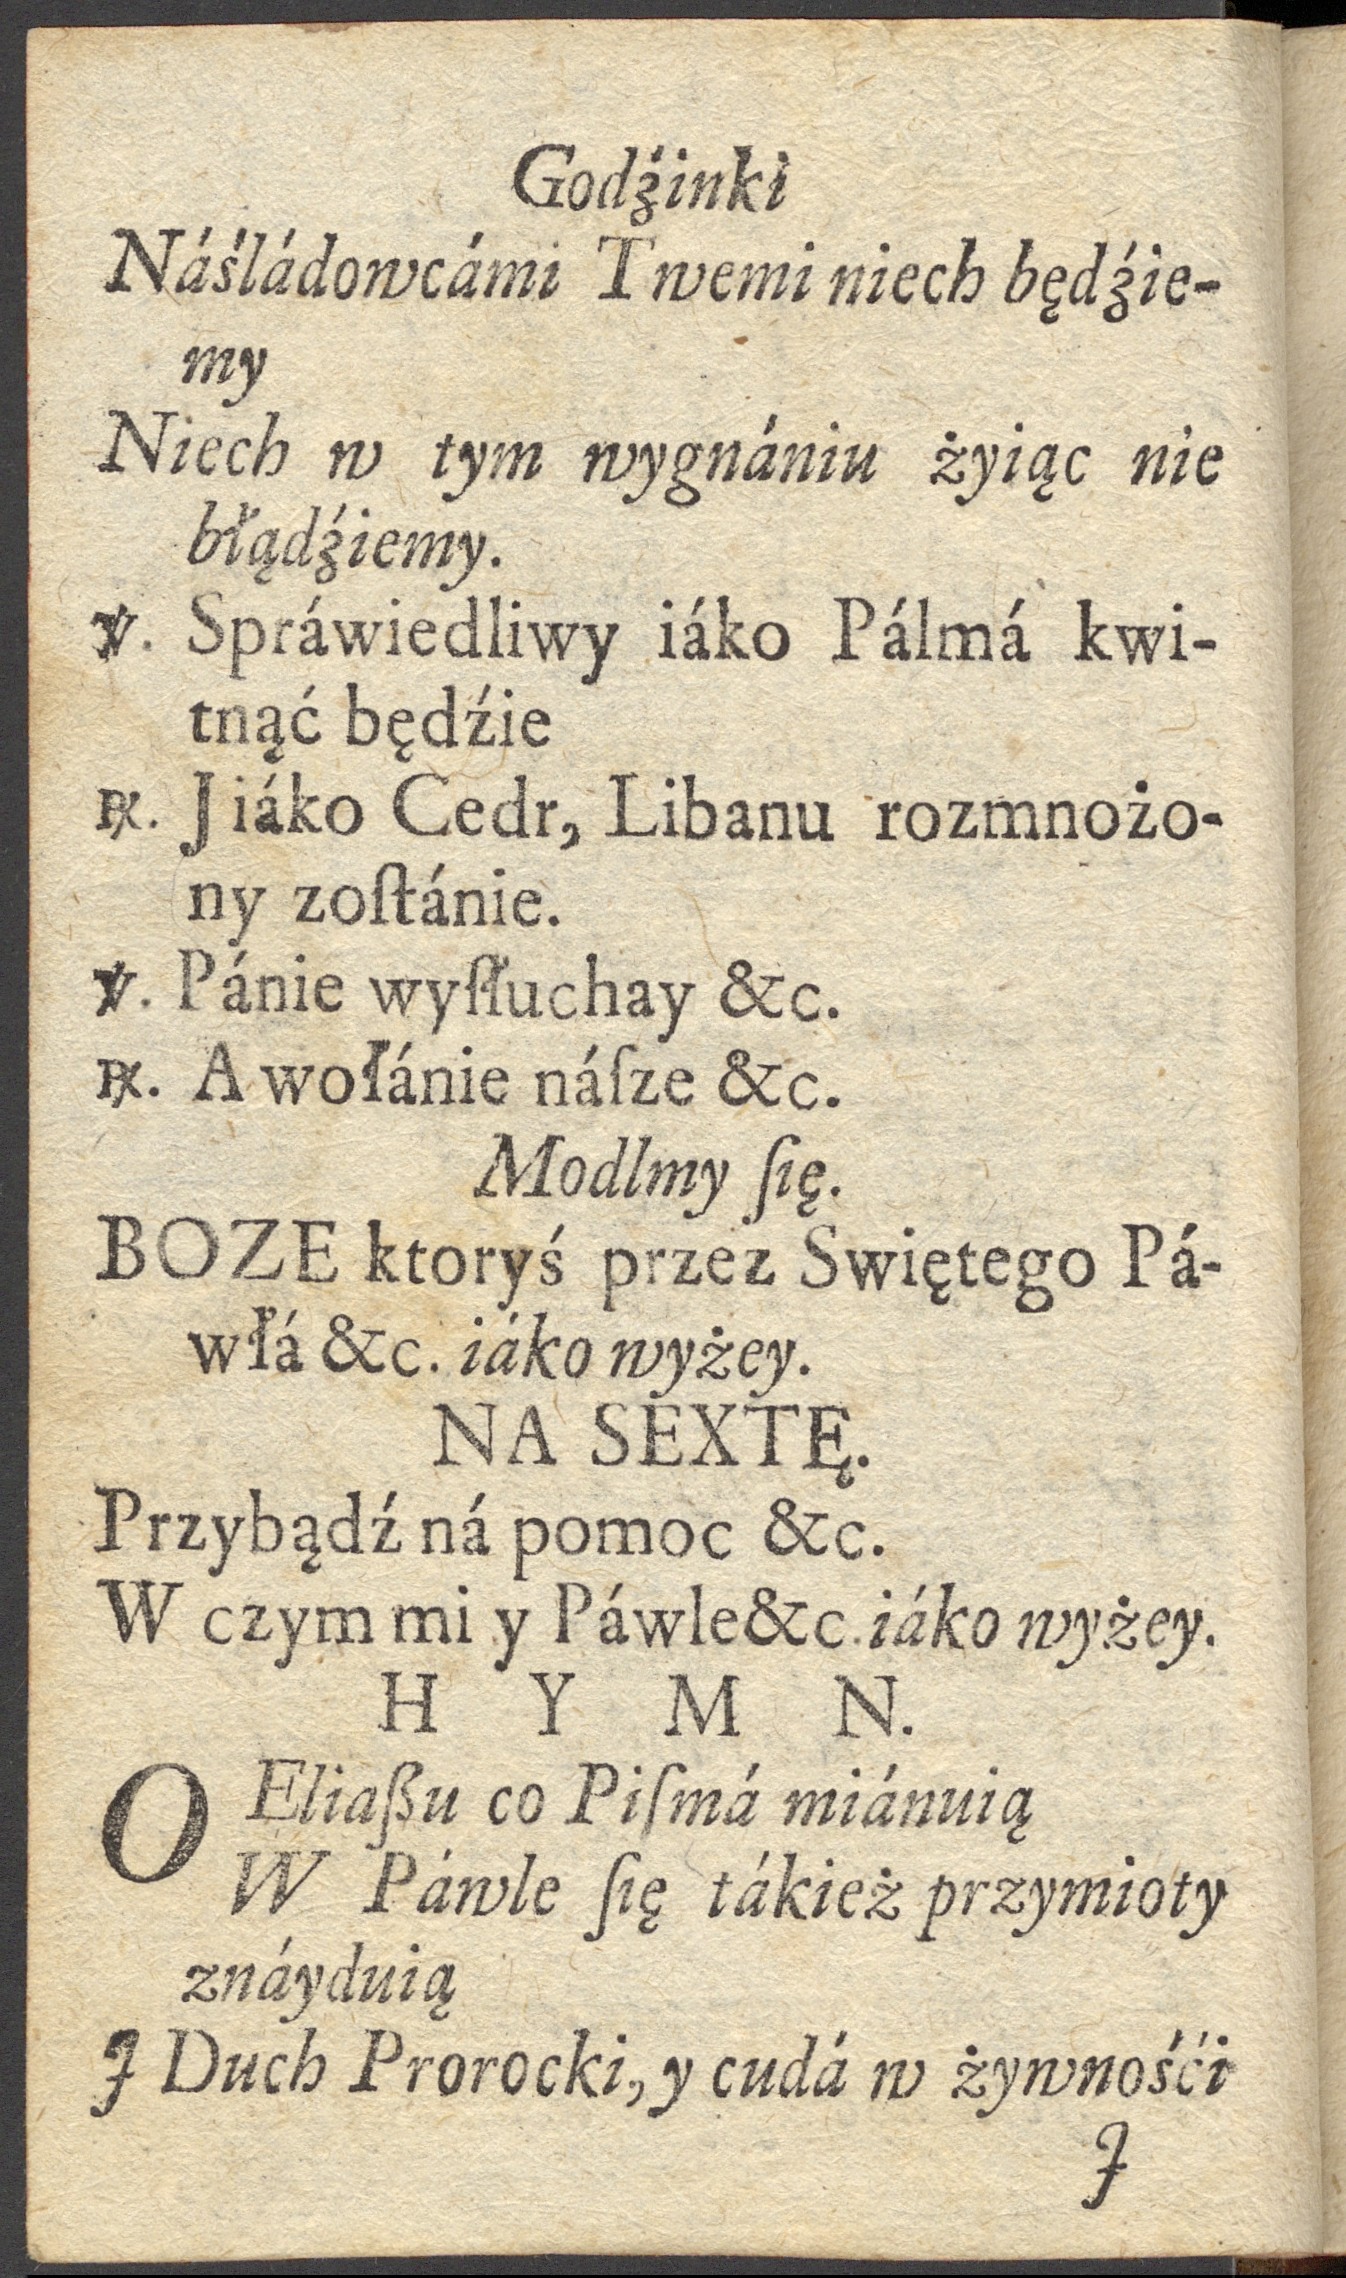 Godźinki
Náśládowcámi Twemi niech będźie-
my
Niech w tym wygnániu żyiąc nie
błądźiemy.
℣. Spráwiedliwy iáko Pálmá kwi-
tnąć będźie
℟. J iáko Cedr, Libanu rozmnożo-
ny zoſtánie.
℣. Pánie wyſłuchay &c.
℟. A wołánie náſze &c.
Modlmy ſię.
BOZE ktoryś przez Swiętego Pá-
włá &c. iáko wyżey.
NA SEXTĘ.
Przybądź ná pomoc &c.
W czym mi y Páwle &c. iáko wyżey.
H Y M N.
O Eliaßu co Piſmá miánuią
W Páwle ſię tákież przymioty
znáyduią
J Duch Prorocki, y cudá w żywnośći
J